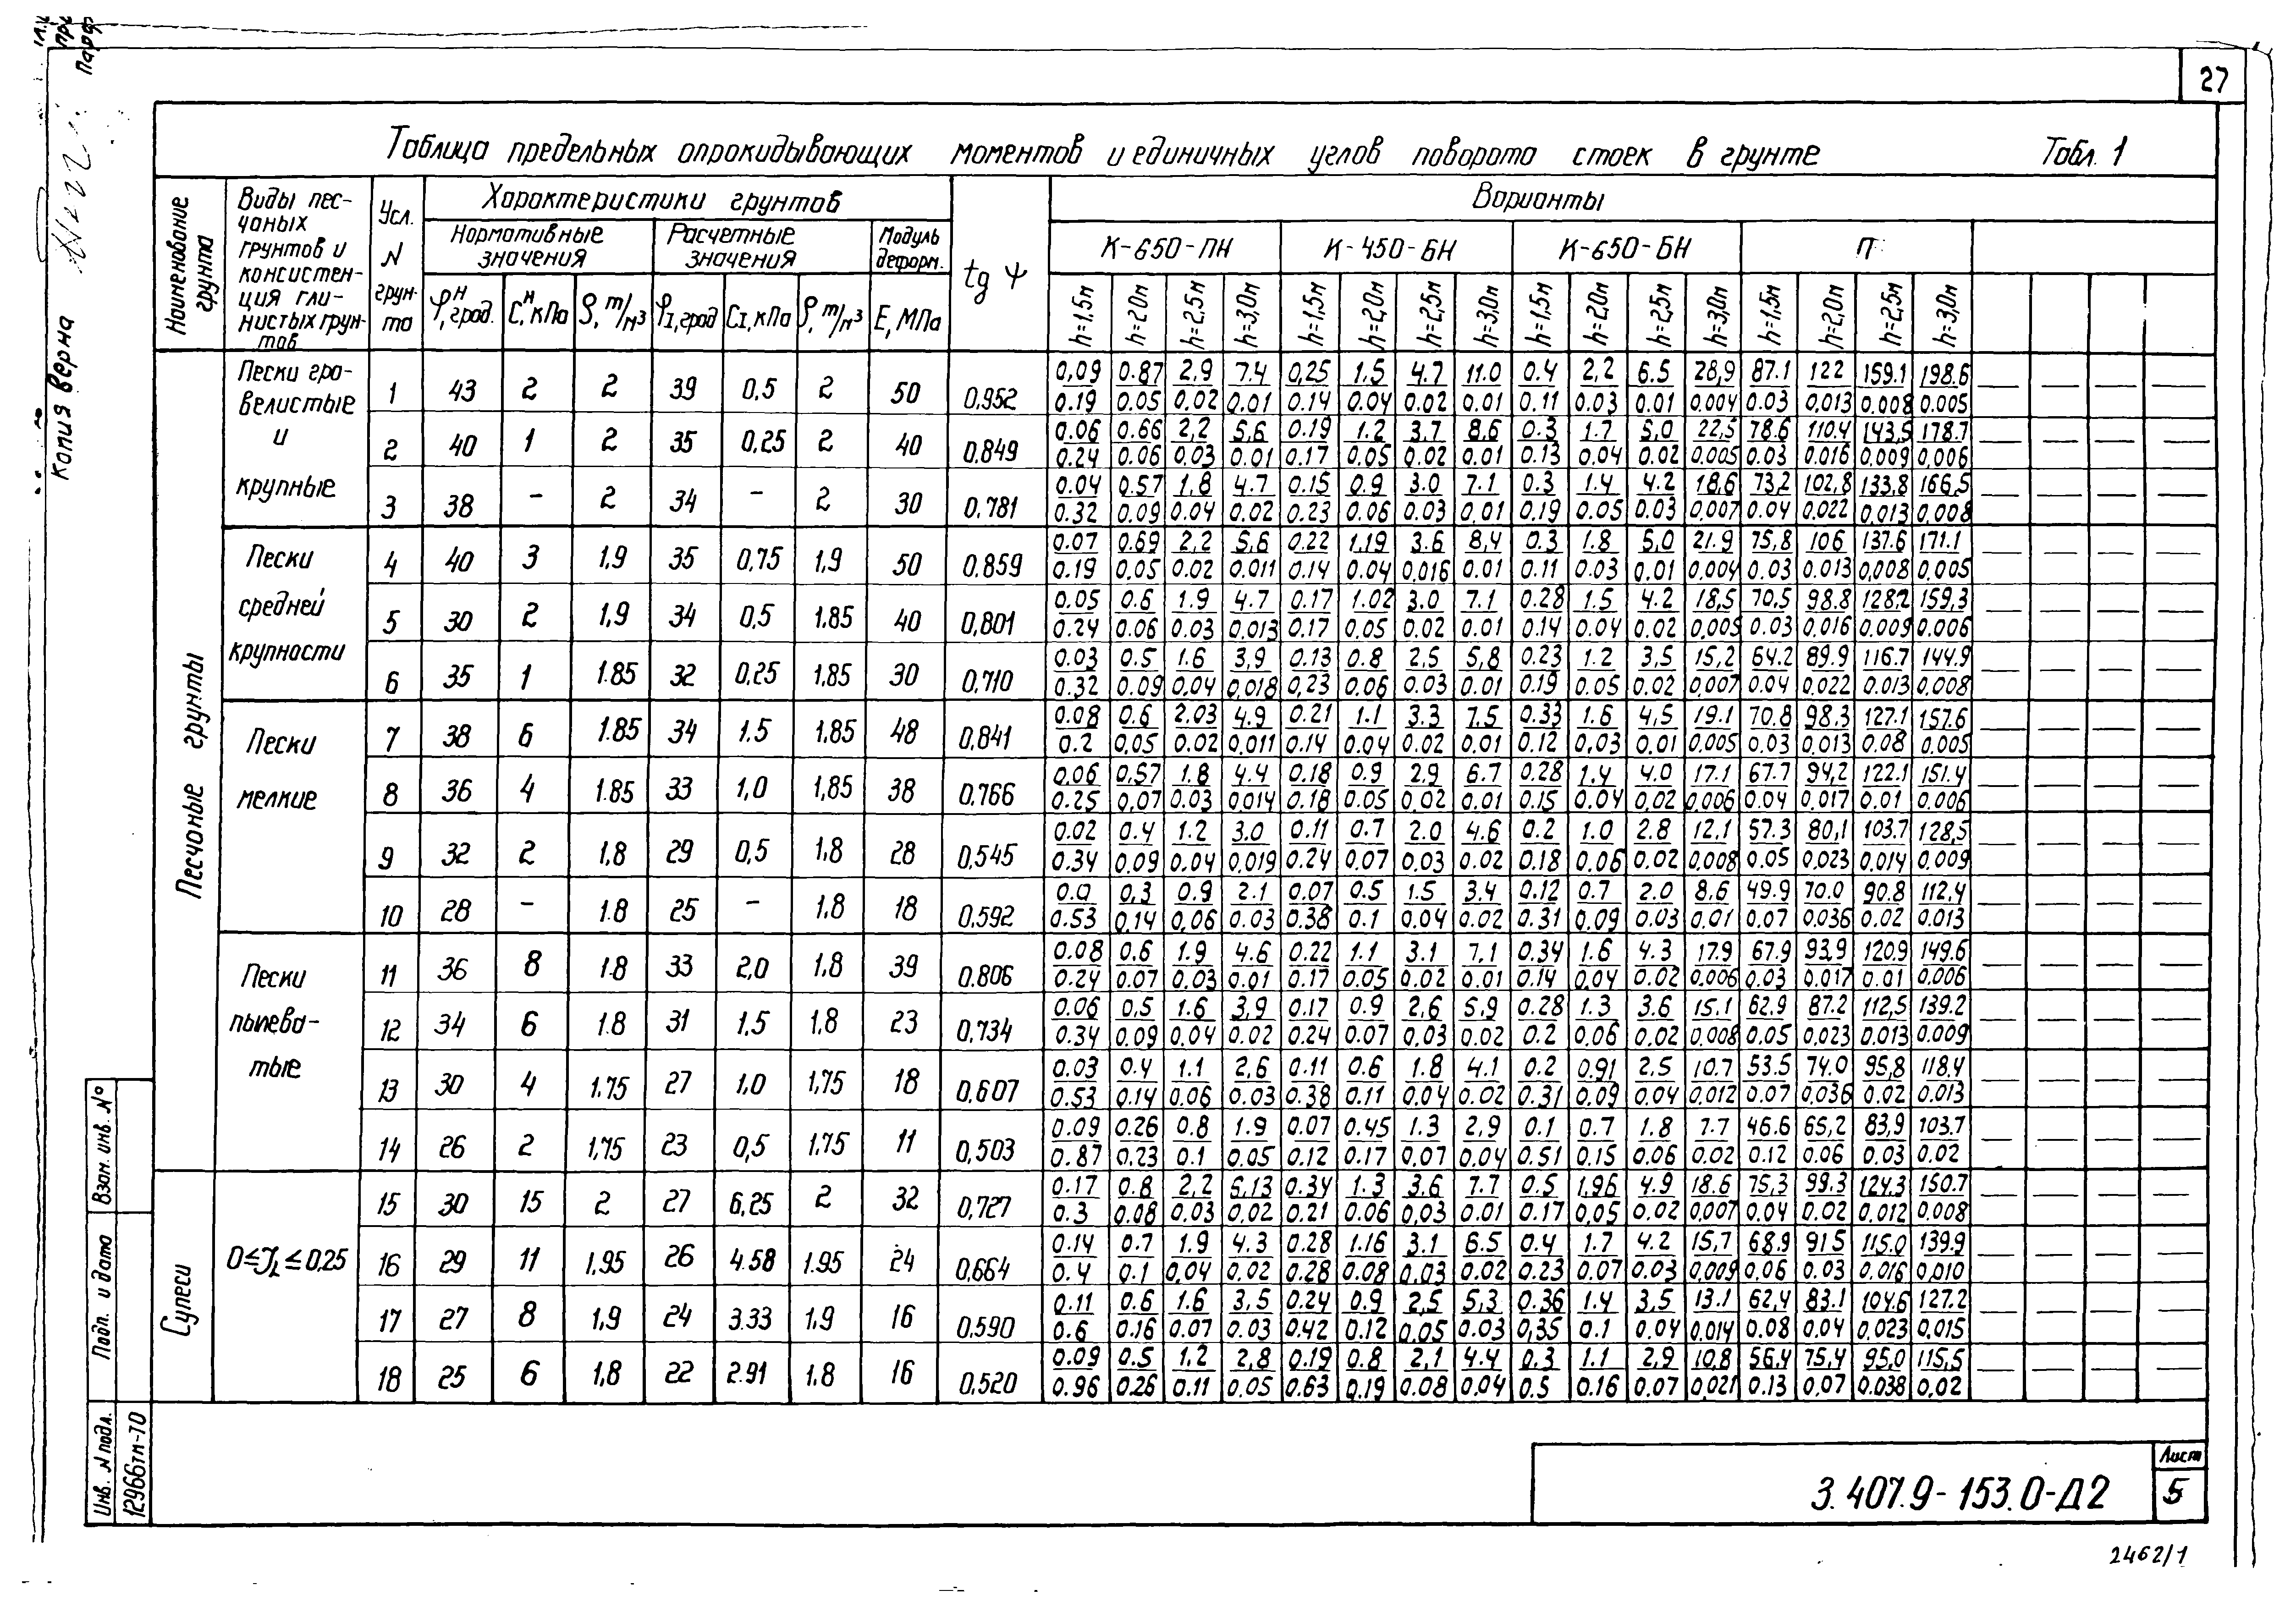 27
Копия верна
Таблица предельных опрокидывающих моментов и единичных углов поворота стоек в грунте Табл. 1
Наименование грунта
Виды песчаных грунтов и консистенция глинистых грунтов
Усл. N грунта
Характеристики грунтов
Нормативные значения
Расчетные значения
Модуль деформ.
φᴴ, град. Cᴴ, кПа ρ, т/м³ φI, град CI, кПа ρ, т/м³ E, МПа
tg ψ
Варианты
К-650-ПН К-450-БН К-650-БН П
h=1,5м h=2,0м h=2,5м h=3,0м h=1,5м h=2,0м h=2,5м h=3,0м h=1,5м h=2,0м h=2,5м h=3,0м h=1,5м h=2,0м h=2,5м h=3,0м
Песчаные грунты
Пески гравелистые и крупные
1 43 2 2 39 0,5 2 50 0,952
0,09 0.87 2,9 7.4 0,25 1.5 4.7 11.0 0.4 2,2 6.5 28,9 87.1 122 159.1 198.6
0.19 0.05 0.02 0.01 0.14 0.04 0.02 0.01 0.11 0.03 0.01 0.004 0.03 0,013 0.008 0.005
2 40 1 2 35 0,25 2 40 0.849
0.06 0.66 2,2 5,6 0.19 1.2 3,7 8,6 0.3 1.7 5,0 22,5 78.6 110.4 143,5 178.7
0.24 0.06 0.03 0.01 0.17 0.05 0.02 0.01 0.13 0.04 0.02 0.005 0.03 0.016 0.009 0,006
3 38 – 2 34 – 2 30 0.781
0.04 0.57 1,8 4.7 0.15 0,9 3.0 7.1 0.3 1.4 4.2 18,6 73,2 102,8 133,8 166,5
0.32 0.09 0.04 0.02 0.23 0.06 0.03 0,01 0.19 0.05 0.03 0.007 0.04 0.022 0,013 0,008
Пески средней крупности
4 40 3 1,9 35 0,75 1,9 50 0.859
0.07 0.69 2,2 5.6 0.22 1,19 3.6 8,4 0.3 1.8 5,0 21.9 75,8 106 137.6 171.1
0.19 0,05 0.02 0.011 0.14 0.04 0,016 0.01 0.11 0.03 0,01 0,004 0.03 0.013 0,008 0,005
5 30 2 1,9 34 0,5 1.85 40 0,801
0.05 0.6 1,9 4.7 0.17 1.02 3.0 7.1 0.28 1.5 4.2 18,5 70,5 98.8 128,2 159,3
0.24 0.06 0.03 0,013 0.17 0,05 0.02 0.01 0.14 0.04 0.02 0,005 0.03 0,016 0.009 0.006
6 35 1 1.85 32 0,25 1,85 30 0,710
0.03 0.5 1.6 3,9 0.13 0.8 2,5 5,8 0.23 1.2 3,5 15,2 64.2 89.9 116.7 144.9
0.32 0.09 0,04 0,018 0,23 0.06 0.03 0.01 0.19 0.05 0.02 0,007 0.04 0.022 0.013 0,008
Пески мелкие
7 38 6 1.85 34 1.5 1,85 48 0,841
0.08 0.6 2.03 4.9 0.21 1.1 3.3 7.5 0.33 1.6 4,5 19.1 70.8 98.3 127.1 157.6
0.2 0,05 0.02 0,011 0.14 0.04 0.02 0.01 0.12 0,03 0.01 0.005 0.03 0.013 0.08 0.005
8 36 4 1.85 33 1,0 1,85 38 0.766
0,06 0,57 1.8 4.4 0.18 0.9 2,9 6.7 0.28 1.4 4.0 17.1 67.7 94,2 122.1 151.4
0.25 0,07 0.03 0,014 0.18 0.05 0.02 0.01 0.15 0.04 0,02 0,006 0.04 0,017 0.01 0.006
9 32 2 1,8 29 0,5 1,8 28 0,545
0.02 0.4 1.2 3.0 0.11 0.7 2.0 4.6 0.2 1.0 2.8 12,1 57.3 80,1 103.7 128,5
0.34 0.09 0.04 0,019 0.24 0.07 0.03 0.02 0.18 0.06 0.02 0,008 0.05 0,023 0,014 0,009
10 28 – 1.8 25 – 1,8 18 0,592
0.0 0,3 0.9 2.1 0.07 0.5 1.5 3,4 0.12 0.7 2.0 8,6 49.9 70.0 90.8 112,4
0.53 0,14 0,06 0.03 0.38 0.1 0.04 0.02 0.31 0.09 0.03 0.01 0.07 0,036 0.02 0.013
Пески пылеватые
11 36 8 1.8 33 2,0 1,8 39 0.806
0.08 0.6 1.9 4.6 0.22 1.1 3.1 7,1 0.34 1.6 4.3 17.9 67.9 93,9 120,9 149.6
0.24 0.07 0,03 0.01 0.17 0.05 0.02 0.01 0.14 0,04 0.02 0.006 0.03 0.017 0.01 0.006
12 34 6 1.8 31 1,5 1,8 23 0,734
0.06 0,5 1.6 3,9 0.17 0.9 2,6 5,9 0.28 1.3 3.6 15.1 62.9 87.2 112,5 139.2
0.34 0,09 0.04 0.02 0.24 0.07 0.03 0.02 0.2 0,06 0.02 0.008 0.05 0.023 0.013 0.009
13 30 4 1.75 27 1,0 1,75 18 0,607
0.03 0.4 1.1 2,6 0.11 0.6 1.8 4.1 0.2 0.91 2.5 10.7 53.5 74.0 95,8 118.4
0.53 0.14 0.06 0.03 0.38 0.11 0.04 0.02 0.31 0.09 0.04 0,012 0.07 0,036 0.02 0.013
14 26 2 1,75 23 0,5 1.75 11 0,503
0.09 0.26 0.8 1.9 0.07 0.45 1.3 2,9 0.1 0.7 1.8 7.7 46.6 65,2 83,9 103.7
0.87 0.23 0.1 0.05 0.12 0.17 0,07 0.04 0.51 0.15 0.06 0.02 0.12 0.06 0.03 0.02
Супеси
0≤JL≤0.25
15 30 15 2 27 6,25 2 32 0,727
0.17 0.8 2,2 5,13 0.34 1.3 3.6 7.7 0.5 1,96 4.9 18.6 75,3 99.3 124.3 150.7
0.3 0.08 0.03 0,02 0.21 0.06 0,03 0.01 0.17 0,05 0.02 0,007 0.04 0.02 0.012 0.008
16 29 11 1,95 26 4.58 1.95 24 0,664
0.14 0.7 1.9 4.3 0.28 1.16 3.1 6.5 0.4 1.7 4.2 15,7 68.9 91.5 115.0 139.9
0.4 0.1 0,04 0.02 0.28 0.08 0.03 0.02 0.23 0.07 0.03 0,009 0,06 0.03 0.016 0,010
17 27 8 1,9 24 3.33 1,9 16 0,590
0.11 0.6 1.6 3,5 0.24 0.9 2,5 5,3 0.36 1.4 3,5 13.1 62,4 83.1 104.6 127.2
0.6 0.16 0.07 0.03 0.42 0.12 0,05 0.03 0,35 0.1 0.04 0,014 0.08 0.04 0,023 0,015
18 25 6 1,8 22 2.91 1.8 16 0,520
0.09 0.5 1.2 2,8 0.19 0.8 2,1 4.4 0.3 1.1 2,9 10,8 56.4 75,4 95,0 115,5
0.96 0.26 0.11 0,05 0.63 0.19 0.08 0,04 0.5 0.16 0.07 0,021 0.13 0,07 0.038 0,02
Взам. инв. N°
Подп. и дата
Инв. N подл.
12966тм-70
3.407.9-153.0-Д2
Лист
5
2462/1